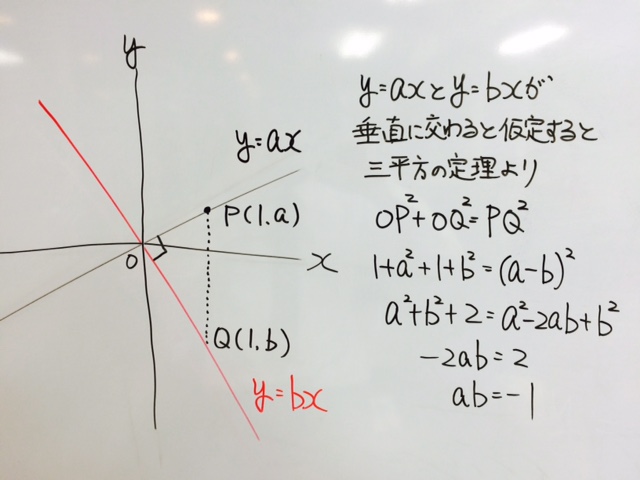 y
y=ax
P(1.a)
x
O
Q(1.b)
y=bx
y=axとy=bxが
垂直に交わると仮定すると
三平方の定理より
OP²+OQ²=PQ²
1+a²+1+b²=(a-b)²
a²+b²+2=a²-2ab+b²
-2ab=2
ab=-1